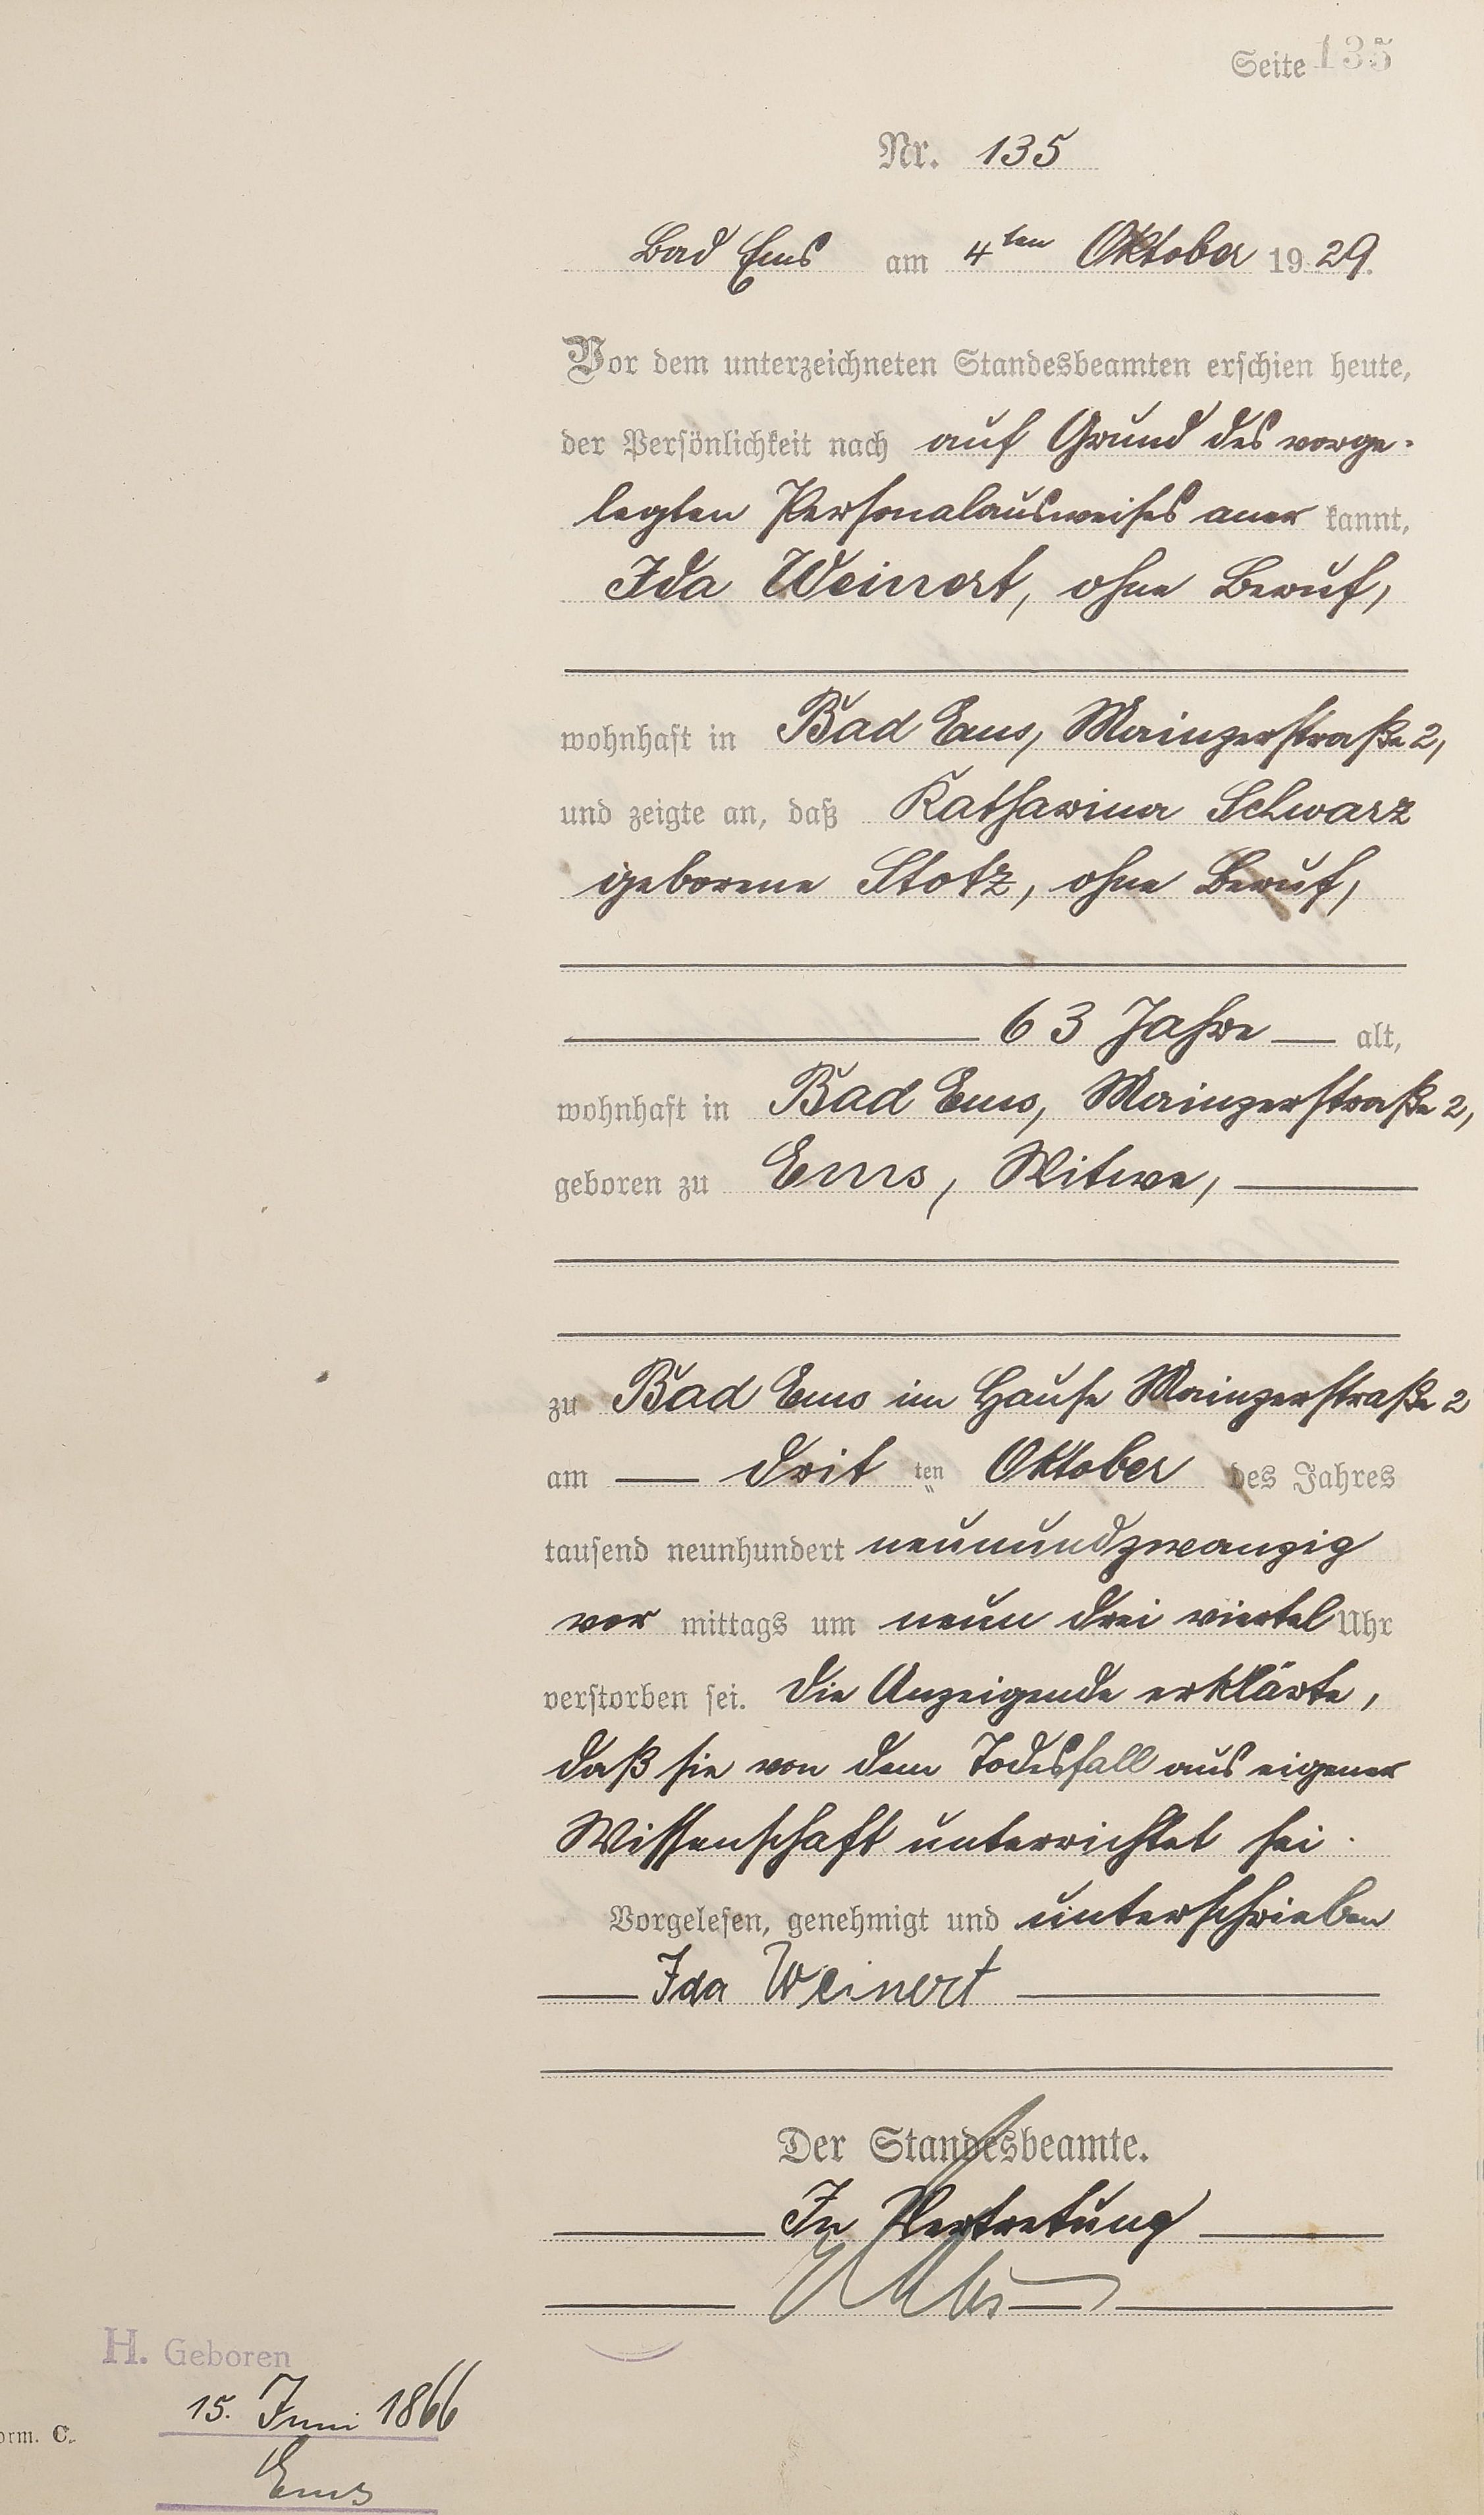 Seite 135
Nr. 135
Bad Ems am 4ten Oktober 1929.
Vor dem unterzeichneten Standesbeamten erschien heute,
der Persönlichkeit nach auf Grund des vorge-
legten Personalausweises aner kannt,
Ida Weinert, ohne Beruf,
wohnhaft in Bad Ems, Mainzerstraße 2,
und zeigte an, daß Katharina Schwarz
geborene Stotz, ohne Beruf,
63 Jahre alt,
wohnhaft in Bad Ems, Mainzerstraße 2,
geboren zu Ems, Witwe,
zu Bad Ems im Hause Mainzerstraße 2
am drit ten Oktober des Jahres
tausend neunhundert neunundzwanzig
vor mittags um neun drei viertel Uhr
verstorben sei. Die Anzeigende erklärte,
daß sie von dem Todesfall aus eigener
Wissenschaft unterrichtet sei.
Vorgelesen, genehmigt und unterschrieben
Ida Weinert
Der Standesbeamte.
In Vertretung
H. Geboren
15. Juni 1866
orm. C.
Ems